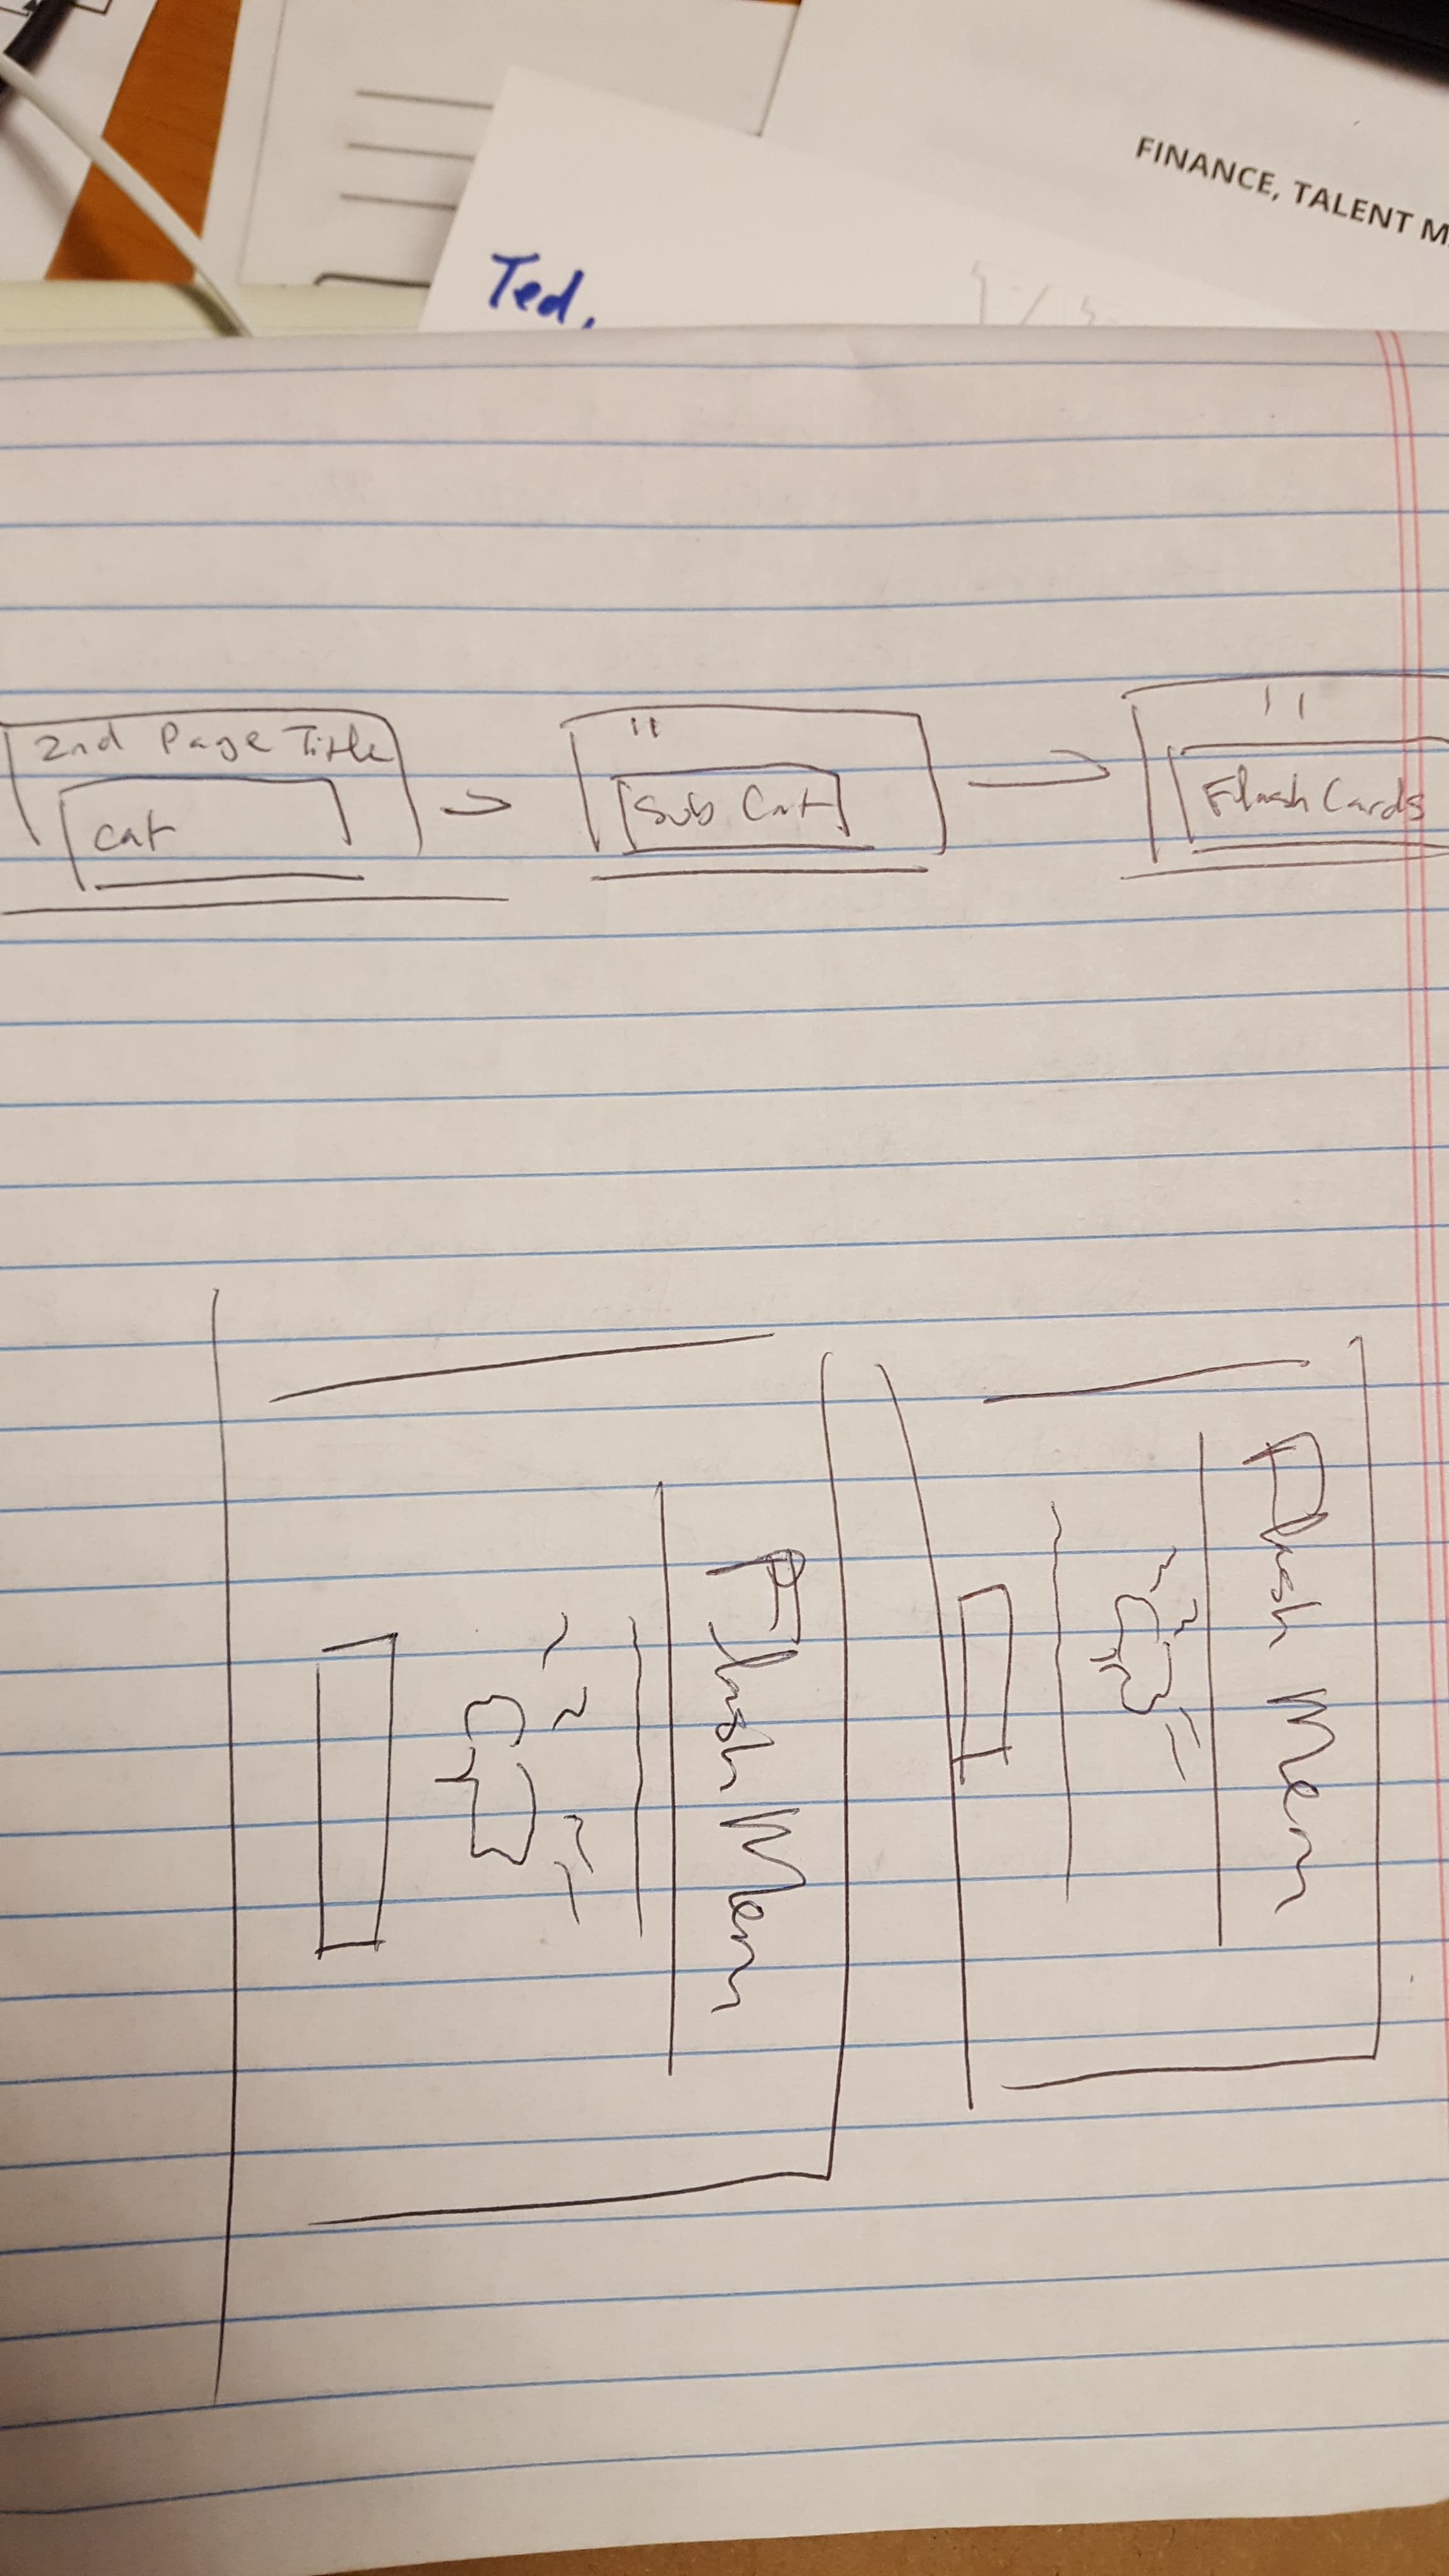 FINANCE, TALENT M
Ted,
2nd Page Title
cat
"
Sub Cat
"
Flash Cards
Flash Mem
Flash Mem